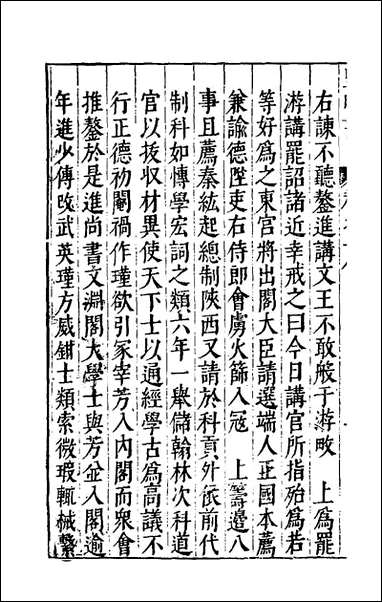 右諫不聽鏊進講文王不敢般于游畋　上為罷
游講罷詔諸近幸戒之曰今日講官所指殆為若
等好為之東宮將出閣大臣請選端人正國本薦
兼諭德陞吏右侍郎會虜火篩入冦　上籌邊八
事且薦秦紘起總制陝西又請於科貢外依前代
制科如博學宏詞之類六年一舉儲翰林次科道
官以拔収材異使天下士以通經學古為高議不
行正德初閹禍作瑾欲引冢宰芳入內閣而衆會
推鏊於是進尚書文淵閣大學士與芳並入閣逾
年進少傅攺武英瑾方威鉗士類索微瑕輒械繫